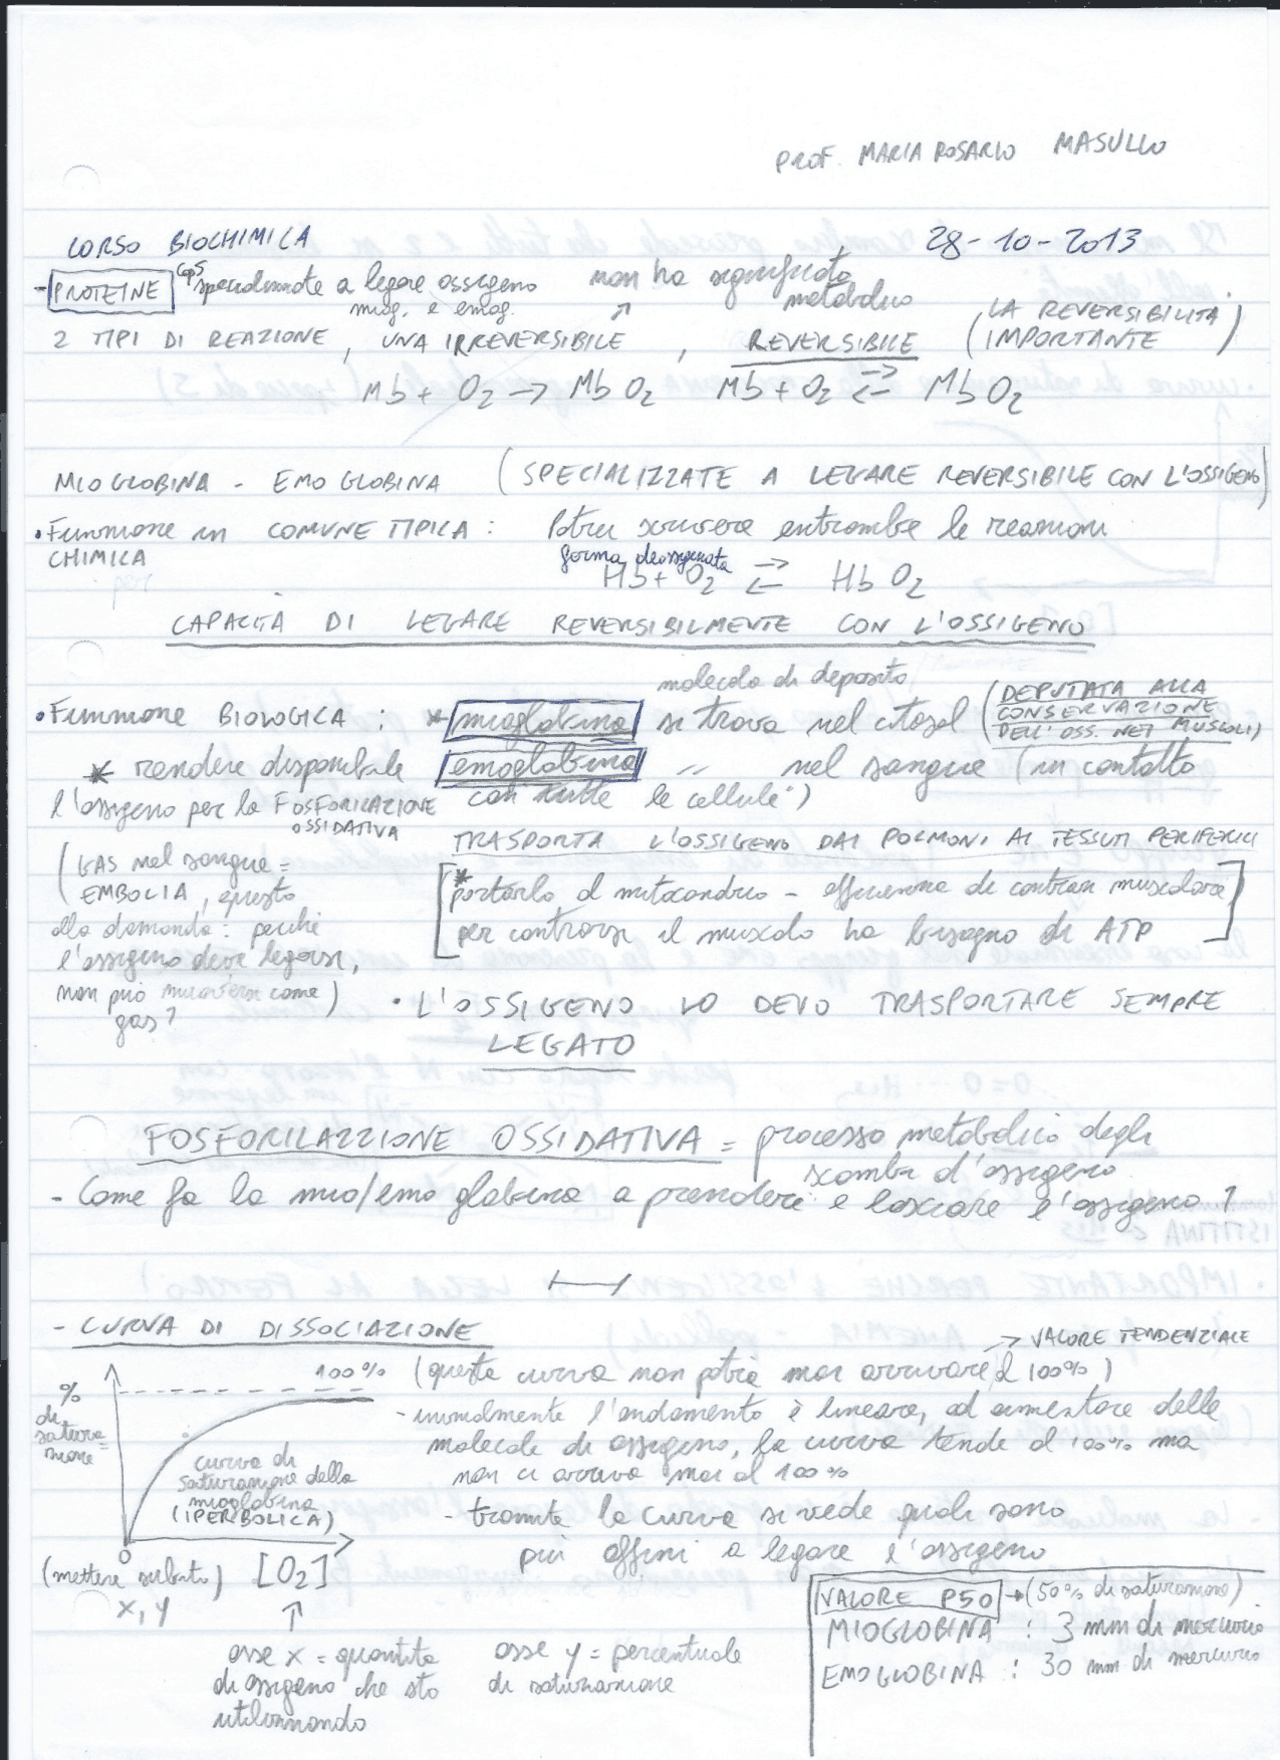 PROF. MARIA ROSARIO MASULLO
CORSO BIOCHIMICA 28-10-2013
- PROTEINE specializzate a legare ossigeno non ha significato
miog. e emog. metabolico
2 TIPI DI REAZIONE, UNA IRREVERSIBILE, REVERSIBILE (LA REVERSIBILITÀ IMPORTANTE)
Mb + O2 → MbO2 Mb + O2 ⇄ MbO2
MIOGLOBINA - EMOGLOBINA (SPECIALIZZATE A LEGARE REVERSIBILE CON L'OSSIGENO)
• Funzione in COMUNE TIPICA: Potrei scrivere entrambe le reazioni
CHIMICA forma deossigenata
Hb + O2 ⇄ HbO2
CAPACITÀ DI LEGARE REVERSIBILMENTE CON L'OSSIGENO
molecola di deposito
• Funzione BIOLOGICA: * mioglobina si trova nel citosol (DEPUTATA ALLA
CONSERVAZIONE
DELL'OSS. NEI MUSCOLI)
* rendere disponibile emoglobina " nel sangue (in contatto
l'ossigeno per la FOSFORILAZIONE con tutte le cellule)
OSSIDATIVA
TRASPORTA L'OSSIGENO DAI POLMONI AI TESSUTI PERIFERICI
(GAS nel sangue =
EMBOLIA, questo
alla domanda: perché
l'ossigeno deve legarsi,
non può muoversi come
gas?)
[* portarlo al mitocondrio - efficienza di contraz muscolare
per contrarsi il muscolo ha bisogno di ATP]
• L'OSSIGENO LO DEVO TRASPORTARE SEMPRE
LEGATO
FOSFORILAZZIONE OSSIDATIVA = processo metabolico degli
scambi d'ossigeno
- Come fa la mio/emo globina a prendere e lasciare l'ossigeno?
- CURVA DI DISSOCIAZIONE
→ VALORE TENDENZIALE
100% (questa curva non potrà mai arrivare al 100%)
% di saturazione
- inizialmente l'andamento è lineare, ad aumentare delle
molecole di ossigeno, la curva tende al 100% ma
non ci arriva mai al 100%
curva di
saturazione della
mioglobina
(IPERBOLICA)
- tramite la curva si vede quali sono
più affini a legare l'ossigeno
0
(mettere subito) [O2]
x, y
asse x = quantità
di ossigeno che sto
utilizzando
asse y = percentuale
di saturazione
VALORE P50 → (50% di saturazione)
MIOGLOBINA : 3 mm di mercurio
EMOGLOBINA : 30 mm di mercurio